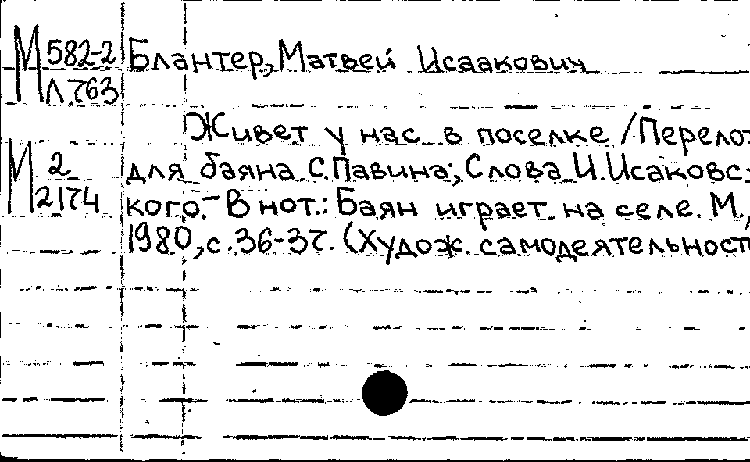 М 582-2 Блантер, Матвей Исаакович
Л.763
Живет у нас в поселке /Перелож
М 2 для баяна С.Павина; Слова И.Исаковс-
2174 кого.- В нот.: Баян играет на селе. М.,
1980, с. 36-37. (Худож. самодеятельност